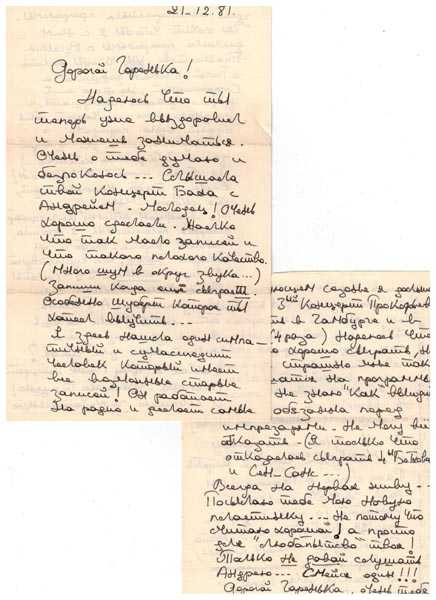 21-12.81.
Дорогой Гаренька!
Надеюсь что ты
теперь уже выздоровил
и можешь заниматься.
Очень о тебе думаю и
беспокоюсь... Слышала
твой Концерт Баха с
Андреем. Молодец! Очень
хорошо сделали. Жалко
что так мало записей и
что такого плохого качество.
(много шум в округ звука...)
Запиши когда ещё сыграешь.
Особенно шуберт которое ты
хотел выучить...
Я здесь нашла один симпа-
тичный и сумасшедший
человек который имеет
все возможные старые
записей! Он работает
на радио и делает самые
3ий Концерт Прокофьева
в Гамбурге и в
4 раза) Надеюсь что
хорошо сыграть, но
страшно мне так
на программы
Не знаю "Как выйдет
обязана перед
импрезарями. Не могу всё
отказать. (Я только что
отказалась сыграть 4ий Бетховен
и Сен-Санс...)
Всегда на нервах живу...
Посылаю тебе мою новую
пластинку... Не потому что
считаю хорошой! а просто
для "любопытство" твое!
Только не давай слушать
Андрею... Смейся один!!!
Дорогой Гаренька, очень тебе